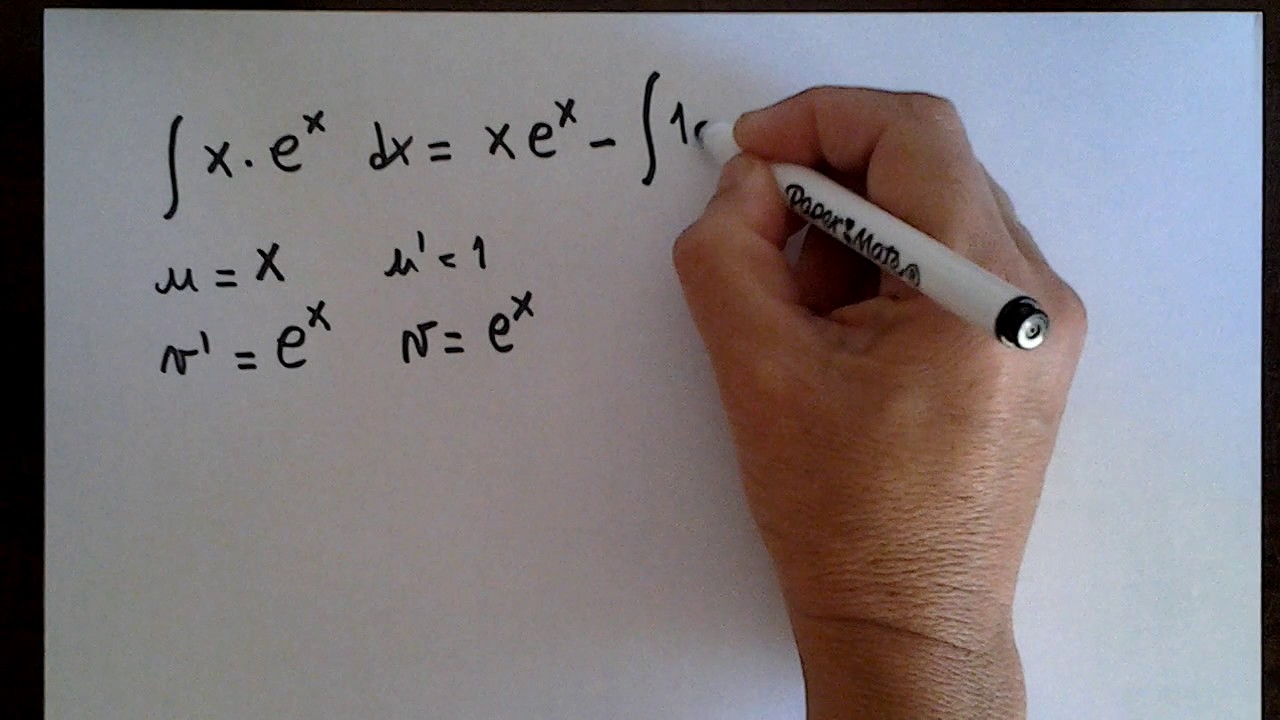 ∫ x · eˣ dx = x eˣ - ∫ 1
u = x u' = 1
v' = eˣ v = eˣ
Paper Mate®